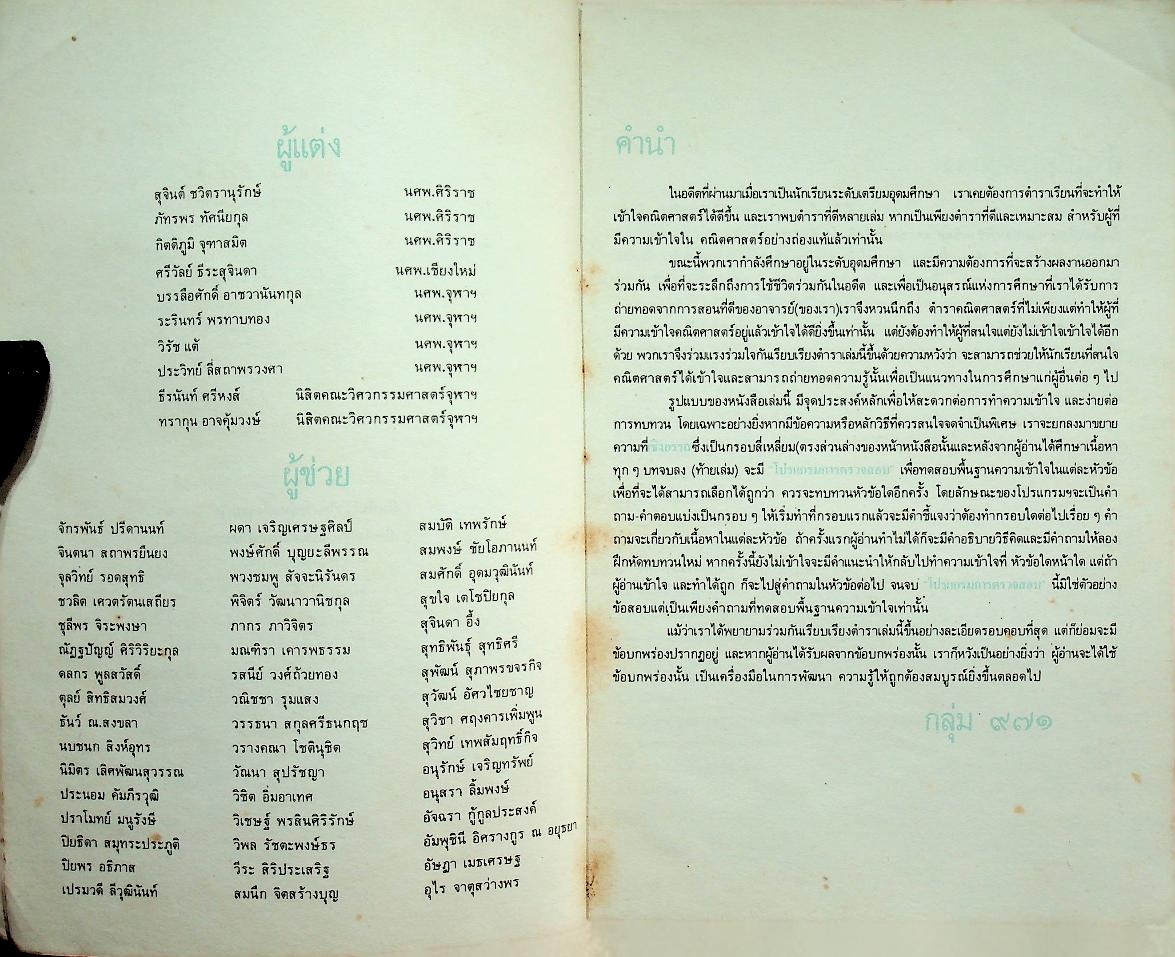 ผู้แต่ง
สุจินต์ ชวิตรานุรักษ์ นศพ.ศิริราช
ภัทรพร ทัศนียกุล นศพ.ศิริราช
กิตติภูมิ จุฑาสมิต นศพ.ศิริราช
ศรีวัลย์ ธีระสุจินดา นศพ.เชียงใหม่
บรรลือศักดิ์ อาชวานันทกุล นศพ.จุฬาฯ
ระรินทร์ พรทาบทอง นศพ.จุฬาฯ
วิรัช แต้ นศพ.จุฬาฯ
ประวิทย์ ลี่สถาพรวงศา นศพ.จุฬาฯ
ธีรนันท์ ศรีหงส์ นิสิตคณะวิศวกรรมศาสตร์จุฬาฯ
ทรากุน อาจคุ้มวงษ์ นิสิตคณะวิศวกรรมศาสตร์จุฬาฯ
ผู้ช่วย
จักรพันธ์ ปรีดานนท์ ผดา เจริญเศรษฐศิลป์ สมบัติ เทพรักษ์
จินตนา สถาพรยืนยง พงษ์ศักดิ์ บุญยะลีพรรณ สมพงษ์ ชัยโอภานนท์
จุลวิทย์ รอดสุทธิ พวงชมพู สัจจะนิรันดร สมศักดิ์ อุดมวุฒินันท์
ชวลิต เศวตรัตนเสถียร พิจิตร์ วัฒนาวานิชกุล สุขใจ เตโชปิยกุล
ชุลีพร จิระพงษา ภากร ภาวิจิตร สุจินดา อึ้ง
ณัฏฐปัญญ์ ศิริวิริยะกุล มณฑิรา เคารพธรรม สุทธิพันธุ์ สุทธิศรี
ดลกร พูลสวัสดิ์ รสนีย์ วงศ์ถ้วยทอง สุพัฒน์ สุภาพรขจรกิจ
ตุลย์ สิทธิสมวงศ์ วณิชชา รุมแสง สุวัฒน์ อัศวไชยชาญ
ธันว์ ณ.สงขลา วรรธนา สกุลศรีธนกฤช สุวิชา ศฤงคารเพิ่มพูน
นบชนก สิงห์อุทร วรางคณา โชตินุชิต สุวิทย์ เทพสัมฤทธิ์กิจ
นิมิตร เลิศพัฒนสุวรรณ วัณนา สุปรัชญา อนุรักษ์ เจริญทรัพย์
ประนอม คัมภีรวุฒิ วิชิต อิ่มอาเทศ อนุสรา ลิ้มพงษ์
ปราโมทย์ มนูรังษี วิเชษฐ์ พรสินศิริรักษ์ อัจฉรา กู้กูลประสงค์
ปิยธิดา สมุทระประภูติ วิพล รัชตะพงษ์ธร อัมพุชินี อิศรางกูร ณ อยุธยา
ปิยพร อธิภาส วีระ สิริประเสริฐ อัษฎา เมธเศรษฐ
เปรมวดี ลีวุฒินันท์ สมนึก จิตสร้างบุญ อุไร จาตุสว่างพร
คำนำ
ในอดีตที่ผ่านมาเมื่อเราเป็นนักเรียนระดับเตรียมอุดมศึกษา เราเคยต้องการตำราเรียนที่จะทำให้
เข้าใจคณิตศาสตร์ได้ดีขึ้น และเราพบตำราที่ดีหลายเล่ม หากเป็นเพียงตำราที่ดีและเหมาะสม สำหรับผู้ที่
มีความเข้าใจใน คณิตศาสตร์อย่างถ่องแท้แล้วเท่านั้น
ขณะนี้พวกเรากำลังศึกษาอยู่ในระดับอุดมศึกษา และมีความต้องการที่จะสร้างผลงานออกมา
ร่วมกัน เพื่อที่จะระลึกถึงการใช้ชีวิตร่วมกันในอดีต และเพื่อเป็นอนุสรณ์แห่งการศึกษาที่เราได้รับการ
ถ่ายทอดจากการสอนที่ดีของอาจารย์(ของเรา)เราจึงหวนนึกถึง ตำราคณิตศาสตร์ที่ไม่เพียงแต่ทำให้ผู้ที่
มีความเข้าใจคณิตศาสตร์อยู่แล้วเข้าใจได้ดียิ่งขึ้นเท่านั้น แต่ยังต้องทำให้ผู้ที่สนใจแต่ยังไม่เข้าใจเข้าใจได้อีก
ด้วย พวกเราจึงร่วมแรงร่วมใจกันเรียบเรียงตำราเล่มนี้ขึ้นด้วยความหวังว่า จะสามารถช่วยให้นักเรียนที่สนใจ
คณิตศาสตร์ได้เข้าใจและสามารถถ่ายทอดความรู้นั้นเพื่อเป็นแนวทางในการศึกษาแก่ผู้อื่นต่อ ๆ ไป
รูปแบบของหนังสือเล่มนี้ มีจุดประสงค์หลักเพื่อให้สะดวกต่อการทำความเข้าใจ และง่ายต่อ
การทบทวน โดยเฉพาะอย่างยิ่งหากมีข้อความหรือหลักวิธีที่ควรสนใจจดจำเป็นพิเศษ เราจะยกลงมาขยาย
ความที่เชิงอรรถซึ่งเป็นกรอบสี่เหลี่ยม(ตรงส่วนล่างของหน้าหนังสือนั้นและหลังจากผู้อ่านได้ศึกษาเนื้อหา
ทุก ๆ บทจบลง (ท้ายเล่ม) จะมี "โปรแกรมการตรวจสอบ" เพื่อทดสอบพื้นฐานความเข้าใจในแต่ละหัวข้อ
เพื่อที่จะได้สามารถเลือกได้ถูกว่า ควรจะทบทวนหัวข้อใดอีกครั้ง โดยลักษณะของโปรแกรมฯจะเป็นคำ
ถาม-คำตอบแบ่งเป็นกรอบ ๆ ให้เริ่มทำที่กรอบแรกแล้วจะมีคำชี้แจงว่าต้องทำกรอบใดต่อไปเรื่อย ๆ คำ
ถามจะเกี่ยวกับเนื้อหาในแต่ละหัวข้อ ถ้าครั้งแรกผู้อ่านทำไม่ได้ก็จะมีคำอธิบายวิธีคิดและมีคำถามให้ลอง
ฝึกหัดทบทวนใหม่ หากครั้งนี้ยังไม่เข้าใจจะมีคำแนะนำให้กลับไปทำความเข้าใจที่ หัวข้อใดหน้าใด แต่ถ้า
ผู้อ่านเข้าใจ และทำได้ถูก ก็จะไปสู่คำถามในหัวข้อต่อไป จนจบ "โปรแกรมการตรวจสอบ" นี้มิใช่ตัวอย่าง
ข้อสอบแต่เป็นเพียงคำถามที่ทดสอบพื้นฐานความเข้าใจเท่านั้น
แม้ว่าเราได้พยายามร่วมกันเรียบเรียงตำราเล่มนี้ขึ้นอย่างละเอียดรอบคอบที่สุด แต่ก็ย่อมจะมี
ข้อบกพร่องปรากฏอยู่ และหากผู้อ่านได้รับผลจากข้อบกพร่องนั้น เราก็หวังเป็นอย่างยิ่งว่า ผู้อ่านจะได้ใช้
ข้อบกพร่องนั้น เป็นเครื่องมือในการพัฒนา ความรู้ให้ถูกต้องสมบูรณ์ยิ่งขึ้นตลอดไป
กลุ่ม ๙๗๑